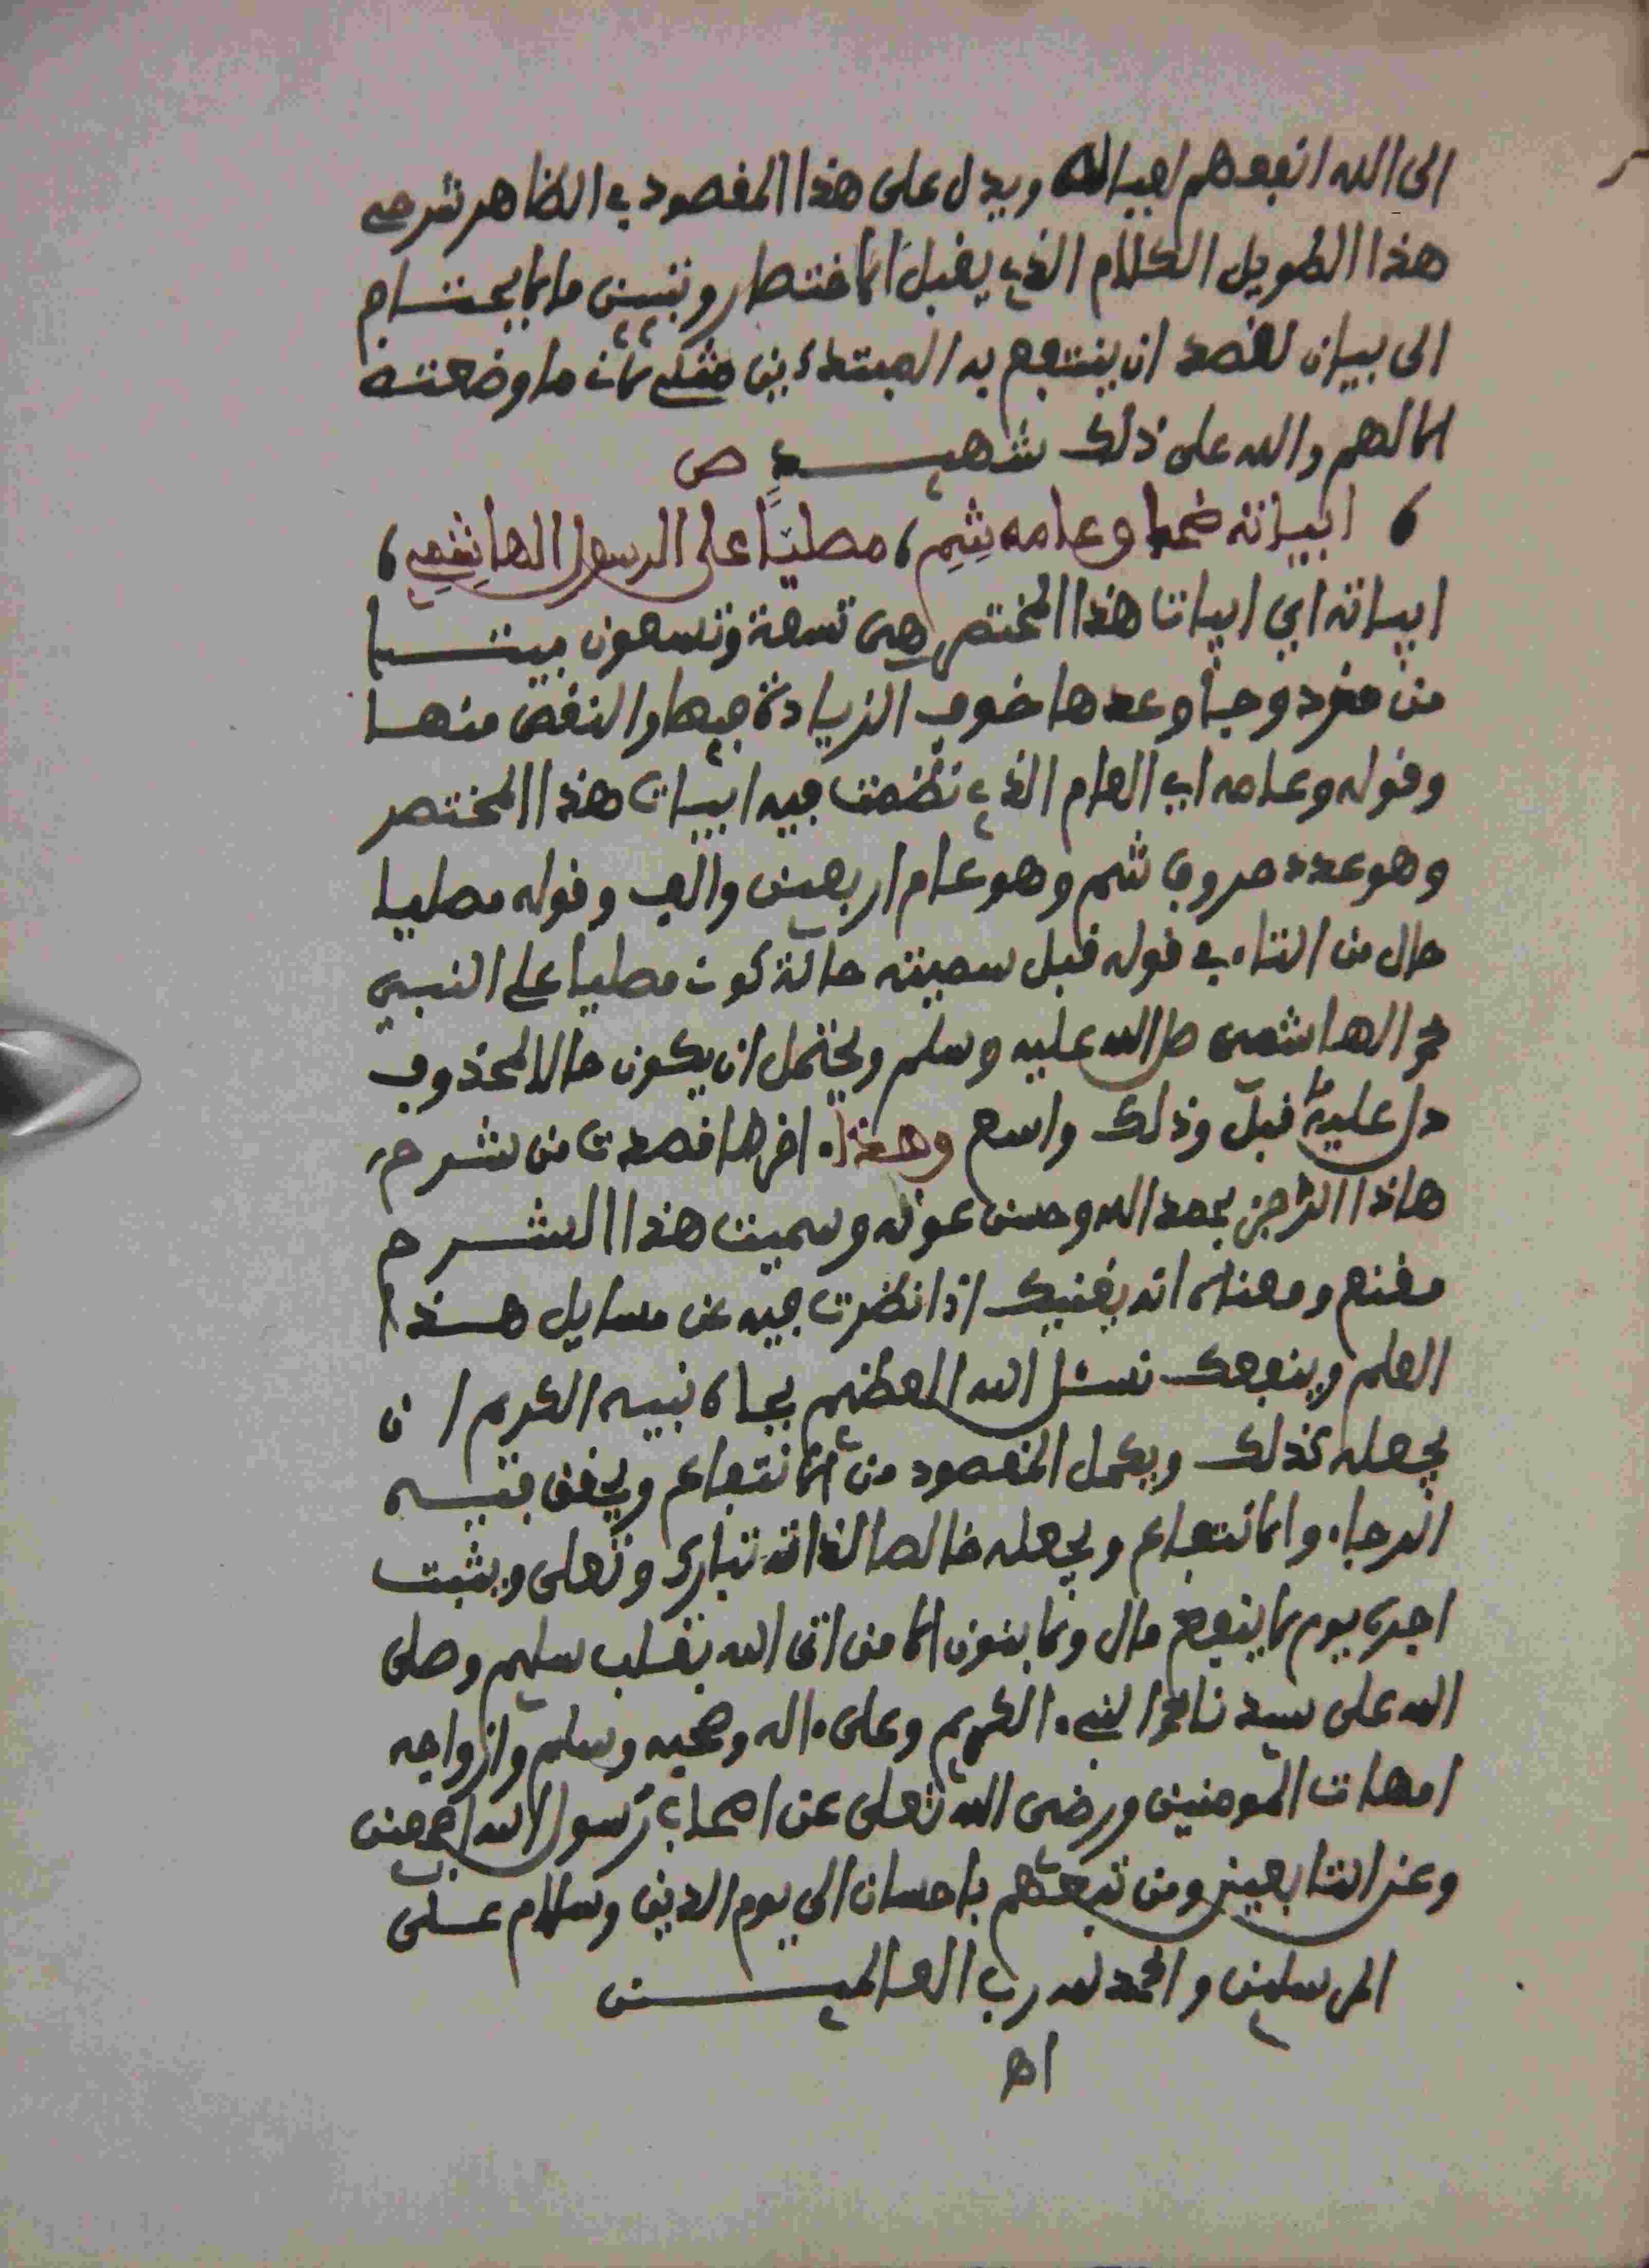 الى الله انفعهم لعياله ويدل على هذا المقصود في الظاهر شرحي
هذا الطويل الكلام الذي يقبل الاختصار وتبيين ما لا يحتاج
الى بيان لقصد ان ينتفع به المبتدءين مثلي لان ما وضعته
الا لهم والله على ذلك شهيد ص
ابياته ضحا وعامه شِمِ، مصليًا على الرسول الهاشِمِي،
ابياته اي ابيات هذا المختصر هي تسعة وتسعون بيتا
من مفرد وجبا وعدها خوف الزيادة فيها والنقص منها
وقوله وعامه اي العام الذي نظمت فيه ابيات هذا المختصر
وهو عدد حروف شم وهو عام اربعين والف وقوله مصليا
حال من التاء في قوله قبل سميته حالة كون مصليا على النبي
محمد الهاشمي صلى الله عليه وسلم ويحتمل ان يكون حالا لمحذوف
دل عليه ما قبل وذلك واسع وهذا ءاخر ما قصدت من شرح
هاذا الرجز بحمد الله وحسن عونه وسميت هذا الشرح
مقنع ومعناه انه يقنيك اذا نظرت فيه عن مسايل هذا
العلم وينفعك نسئل الله العظيم بجاه نبيه الكريم ان
يجعله كذلك ويكمل المقصود من الانتفاع ويحقق فيه
الرجاء والانتفاع ويجعله خالصا لذاته تبارك وتعلى ويثبت
اجره يوم لا ينفع مال ولا بنون الا من اتى الله بقلب سليم وصلى
الله على سيدنا محمد النبي الكريم وعلى ءاله وصحبه وسلم وازواجه
امهات المومنين ورضى الله تعلى عن اصحاب رسول الله اجمعين
وعن التابعين ومن تبعهم باحسان الى يوم الدين وسلام على
المرسلين والحمد لله رب العالمين
اه